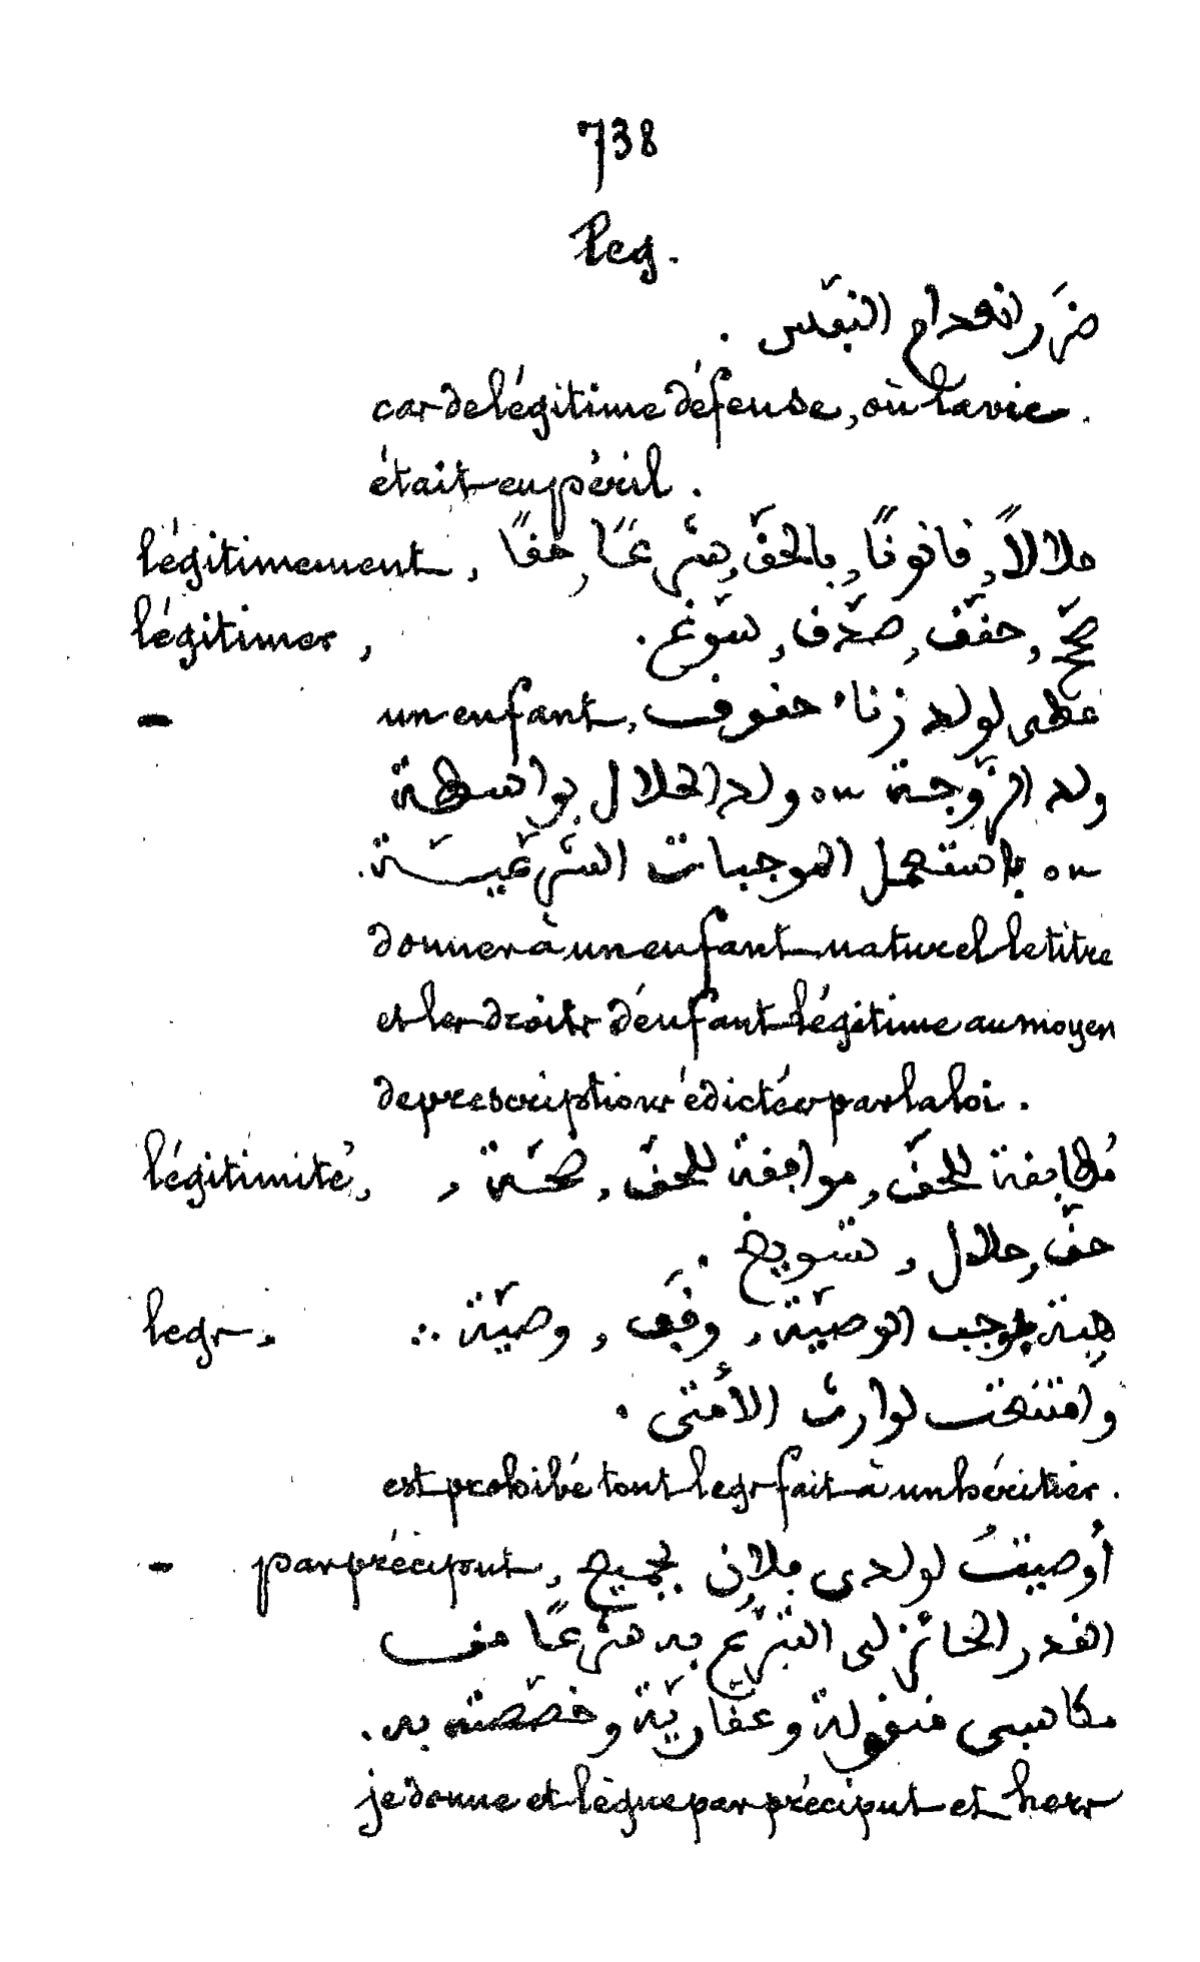 738
Leg.
ضرر انعدام النفس .
cas de légitime défense, où la vie
était en péril .
légitimement, حلالاً, قانونًا, بالحقّ, شرعًا, حقًا
légitimer, صحّح, حقّق, صدّق, سوّغ .
— un enfant, عطى لولد زناء حقوق
ولد الزّوجة ou ولد الحلال بواسطة
ou باستعمل الموجبات الشّرعيّة .
donner à un enfant naturel le titre
et les droits d'enfant légitime au moyen
de prescriptions édictées par la loi .
légitimité, مُطابقة للحقّ, موافقة للحقّ, صحّة ,
حقّ, حلال, تسويغ .
legs, هبة بموجب الوصيّة, وقف, وصيّة :.
وامتنعت لوارث الأمتى .
est prohibé tout legs fait à un héritier .
— par préciput, أوصيتُ لولدى فلان بجميع
القدر الجائز لى التبرّع به شرعًا من
مكاسبى منقولة وعقاريّة وخصّصته به .
je donne et lègue par préciput et hors